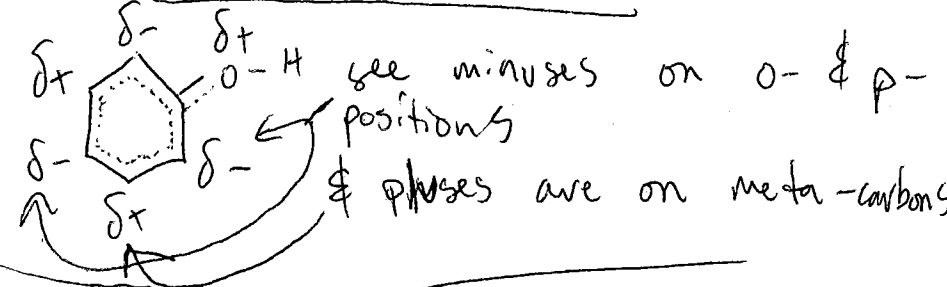 δ- δ+
δ+ O-H see minuses on o- & p-
positions
δ- δ- & pluses are on meta-carbons
δ+